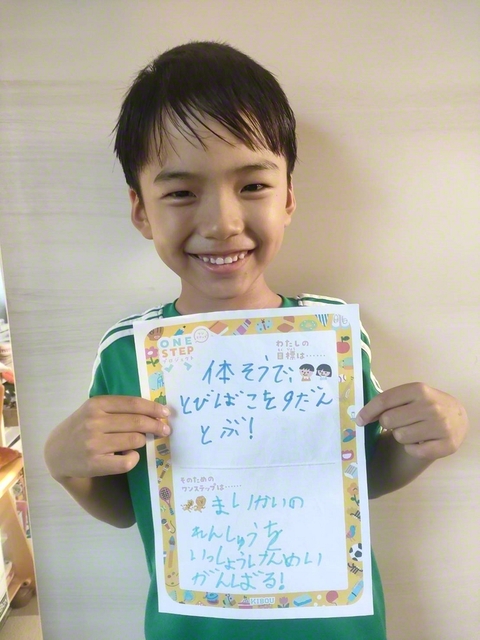 ONE
STEP
プロジェクト
わたしの
目標は……
体そうで、
とびばこを9だん
とぶ!
そのための
ワンステップは……
まいかいの
れんしゅうを
いっしょうけんめい
がんばる!